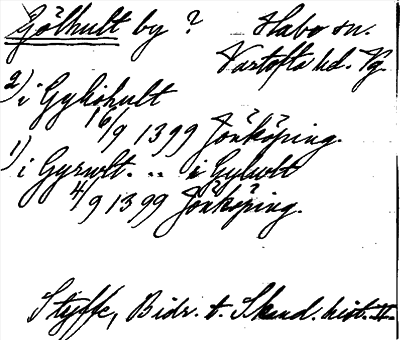 Gölhult by ? Habo sn.
Vartofta hd. Vg.
2) i Gyliohult
16/9 1399 Jönköping.
1) i Gyrwlt. .. i Gylwlt
4/9 1399 Jönköping.
Styffe, Bidr. t. Skand. hist. II.